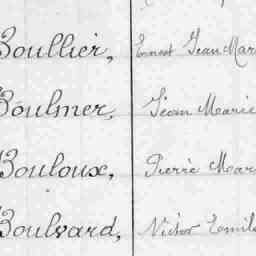 Boullier, Ernest Jean Mar
Boulmer, Jean Marie
Bouloux, Pierre Mar
Boulvard, Victor Emil